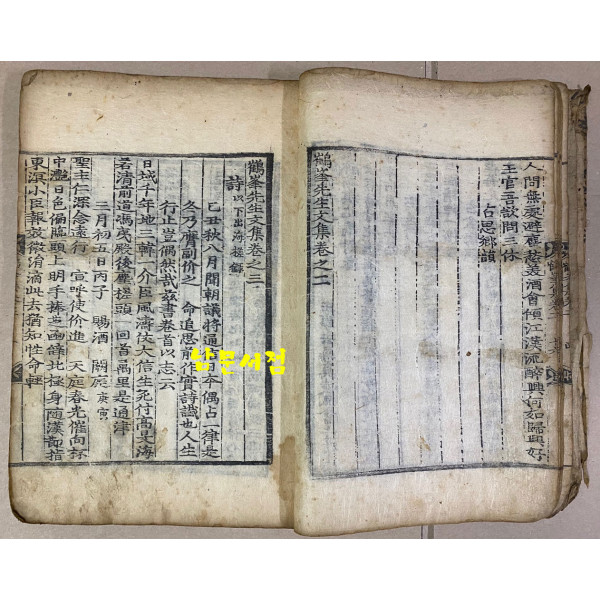 人間無處避
酒會傾江漢流醉興何如歸興好
王官吾欲問三休
占思鄉韻
鶴峯先生文集卷之二
鶴峯先生文集卷之三
詩 以下出海槎錄
己丑秋八月聞朝議將通 偶占一律是
冬乃膺副价之 命追思前作實詩讖也人生
行止豈偶然哉玆書卷首以志云
日域千年地三韓一介臣風濤仗大信生死付高旻海
若清前道馮夷殿後塵槎頭一回首萬里是通津
三月初五日丙子 賜酒 闕庭 庚寅
聖主仁深念遠行 宣呼使价進 天庭春光催向杯
中灔日色偏臨頭上明手捧 函條北極身隨漢節指
東溟小臣報效微涓滴此去猶知性命輕
남문서점